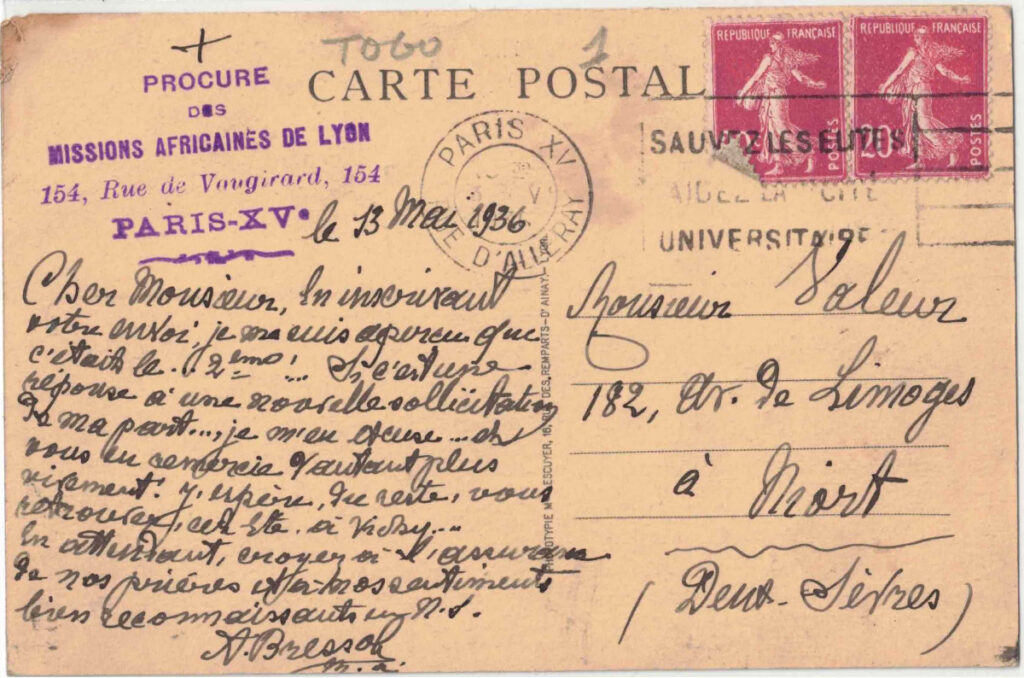 TOGO
1
PROCURE
DES
MISSIONS AFRICAINES DE LYON
154, Rue de Vaugirard, 154
PARIS-XVe
CARTE POSTAL
RÉPUBLIQUE FRANÇAISE
POSTES
RÉPUBLIQUE FRANÇAISE
20c
POSTES
PARIS XV
RUE D'ALLERAY
SAUVEZ LES ELITES
AIDEZ LA CITÉ
UNIVERSITAIRE
le 13 Mai 1936
Cher Monsieur, En inscrivant
votre envoi, je me suis aperçu que
c'était le... 2eme!... Si c'est une
réponse à une nouvelle sollicitation
de ma part..., je m'en excuse... et
vous en remercie d'autant plus
vivement! J'espère, du reste, vous
retrouver, cet Eté, à Vichy...
En attendant, croyez à l'assurance
de nos prières et à nos sentiments
bien reconnaissants en N.S.
A. Bresson
m.a.
PHOTOTYPIE M. LESCUYER, 16, RUE DES REMPARTS-D'AINAY - LYON
Monsieur Valeur
182, Av. de Limoges
à Niort
(Deux-Sèvres)